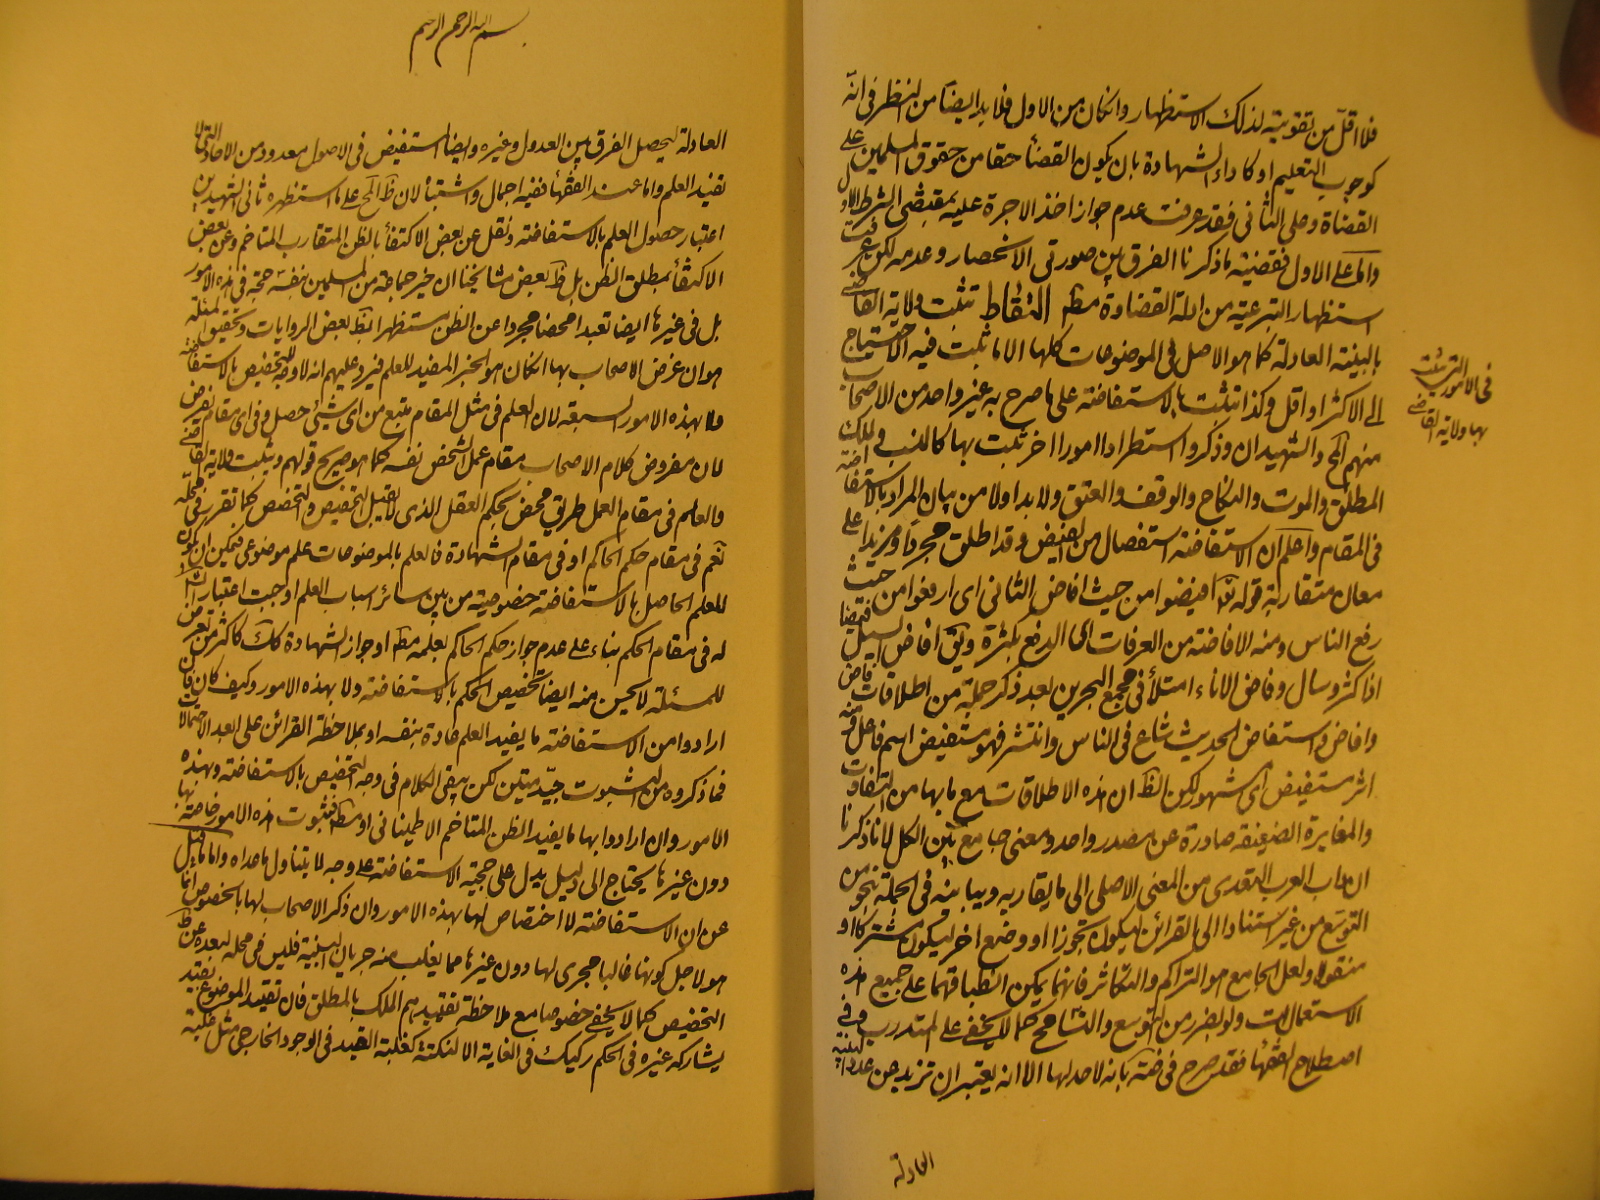 فلا اقل من تقويته لذلك الاستظهار وان كان من الاول فلا بد ايضا من النظر فى انه
كوجوب التعليم او كاداء الشهادة بان يكون القضأ حقا من حقوق المسلمين على
القضاة وعلى الثانى فقد عرفت عدم جواز اخذ الاجرة عليه بمقتضى الشرط الاول
واما على الاول فقضية ما ذكرنا الفرق بين صورتى الانحصار وعدمه لكن عرفت
استظهار التبرعية من ادلة القضاوة مطه التقاط تثبت ولاية القاضى
بالبينة العادلة كما هو الاصل فى الموضوعات كلها الا ما ثبت فيه الاحتياج
الى الاكثر او اقل وكذا تثبت بالاستفاضة على ما صرح به غير واحد من الاصحاب
منهم المح والشهيدان وذكروا استطرادا امورا اخر تثبت بها كالنسب والملك
المطلق والموت والنكاح والوقف والعتق ولا بد اولا من بيان المراد بالاستفاضة
فى المقام واعلم ان الاستفاضة استفعال من الفيض وقد اطلق مجردا ومزيدا على
معان متقاربة قوله تعا افيضوا من حيث افاض الثانى اى ارفعوا من حيث
رفع الناس ومنه الافاضة من العرفات اى الدفع بكثرة ويق افاض السيل فيضا
اذا كثر وسال وفاض الاناء امتلأ فى مجمع البحرين بعد ذكر جملة من اطلاقات فاض
وافاض واستفاض الحديث شاع فى الناس وانتشر فهو مستفيض اسم فاعل ومنه
اثر مستفيض اى مشهور لكن الظ ان هذه الاطلاقات مع ما بها من التفاوت
والمغايرة الضعيفة صادرة عن مصدر واحد ومعنى جامع بين الكل لانا ذكرنا
ان داب العرب التعدى من المعنى الاصلى الى ما يقاربه ويباينه فى الجملة بنحو من
التوسع من غير استناد الى القرائن ليكون تجوزا او وضع اخر ليكون مشتركا او
منقولا ولعل الجامع هو التراكم والتكاثر فانهما يمكن انطباقهما على جميع هذه
الاستعمالات ولو بضرر من التوسع والتسامح كما لا يخفى على المتدرب وفى
اصطلاح الفقهأ فقد صرح فى ضة بانه لا حد لها الا انه يعتبر ان تزيد عن عدد البينة
العادلة
فى الامور التى تثبت
بها ولاية القاضى
بسم الله الرحمن الرحيم
العادلة ليحصل الفرق بين العدول وغيره وايضا المستفيض فى الاصول معدود من الاحاد التى لا
تفيد العلم واما عند الفقهأ ففيه اجمال واشتباه لان ظ المح على ما استظهره ثانى الشهيدين
اعتبار حصول العلم بالاستفاضة ونقل عن بعض الاكتفأ بالظن المتقارب المتاخم وعن بعض
الاكتفأ بمطلق الظن بل ظ بعض مشايخنا ان خبر جماعة من المسلمين بنفسه حجة فى هذه الامور
بل فى غيرها ايضا تعبدا محضا مجردا عن الظن مستظهرا بظ بعض الروايات وتحقيق المسئلة
هو ان غرض الاصحاب بها ان كان هو الخبر المفيد للعلم فيرد عليهم انه لا وجه لتخصيص بالاستفاضة
ولا بهذه الامور السبعة لان العلم فى مثل المقام متبع من اى شيئ حصل وفى اى مقام يفرض
لان مفروض كلام الاصحاب مقام عمل الشخص نفسه كما هو صريح قولهم وتثبت ولاية القاضى
والعلم فى مقام العمل طريق محض بحكم العقل الذى لا يقبل التخصيص والتخصص كما تقرر فى محله
نعم فى مقام حكم الحاكم او فى مقام الشهادة فالعلم بالموضوعات علم موضوعى فيمكن ان يكون
للعلم الحاصل بالاستفاضة خصوصية من بين سائر اسباب العلم اوجبت اعتبار الشارع
له فى مقام الحكم بناء على عدم جواز حكم الحاكم بعلمه مطه او جواز الشهادة كك كاكثر من تعرض
للمسئلة لا يحسن منه ايضا تخصيص الحكم بالاستفاضة ولا بهذه الامور وكيف كان فان
ارادوا من الاستفاضة ما يفيد العلم عادة بنفسه او بملاحظة القرائن على ابعد الاحتمالات
فما ذكروه من الثبوت جيد متين لكن يبقى الكلام فى وجه التخصيص بالاستفاضة وبهذه
الامور وان ارادوا بها ما يفيد الظن المتاخم الاطمينانى او مطه فثبوت هذه الامور خاصة بها
دون غيرها يحتاج الى دليل يدل على حجية الاستفاضة على وجه لا يتناول ما عداه واما ما قيل
عن ان الاستفاضة لا اختصاص لها بهذه الامور وان ذكر الاصحاب لها بالخصوص انما
هو لاجل كونها غالبا مجرى لها دون غيرها مما يغلب منه جريان البينة فليس فى محله لبعده عن ظ
التخصيص كما لا يخفى خصوصا مع ملاحظة تقييدهم الملك بالمطلق فان تقييد الموضوع بقيد
يشاركه غيره فى الحكم ركيك فى الغاية الا لنكتة كغلبة القيد فى الوجود الخارجى مثل غلبة